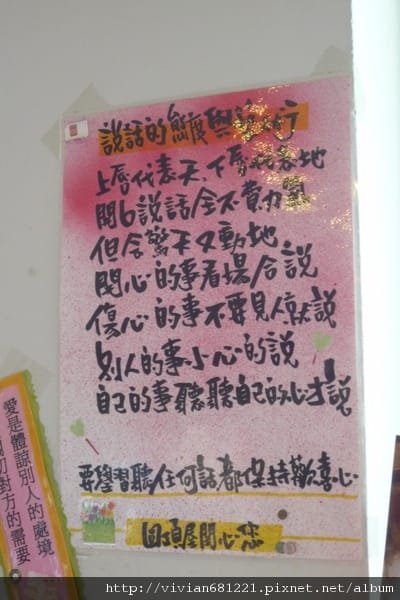 說話的態度與修行
上唇代表天、下唇代表地
開口說話全不費力氣
但會驚天又動地
開心的事看場合說
傷心的事不要見人就說
別人的事小心的說
自己的事聽聽自己的心才說
要學習聽任何話都保持歡喜心
圓頂屋關心您
愛是體諒別人的處境
切對方的需要
http://vivian681221.pixnet.net/album